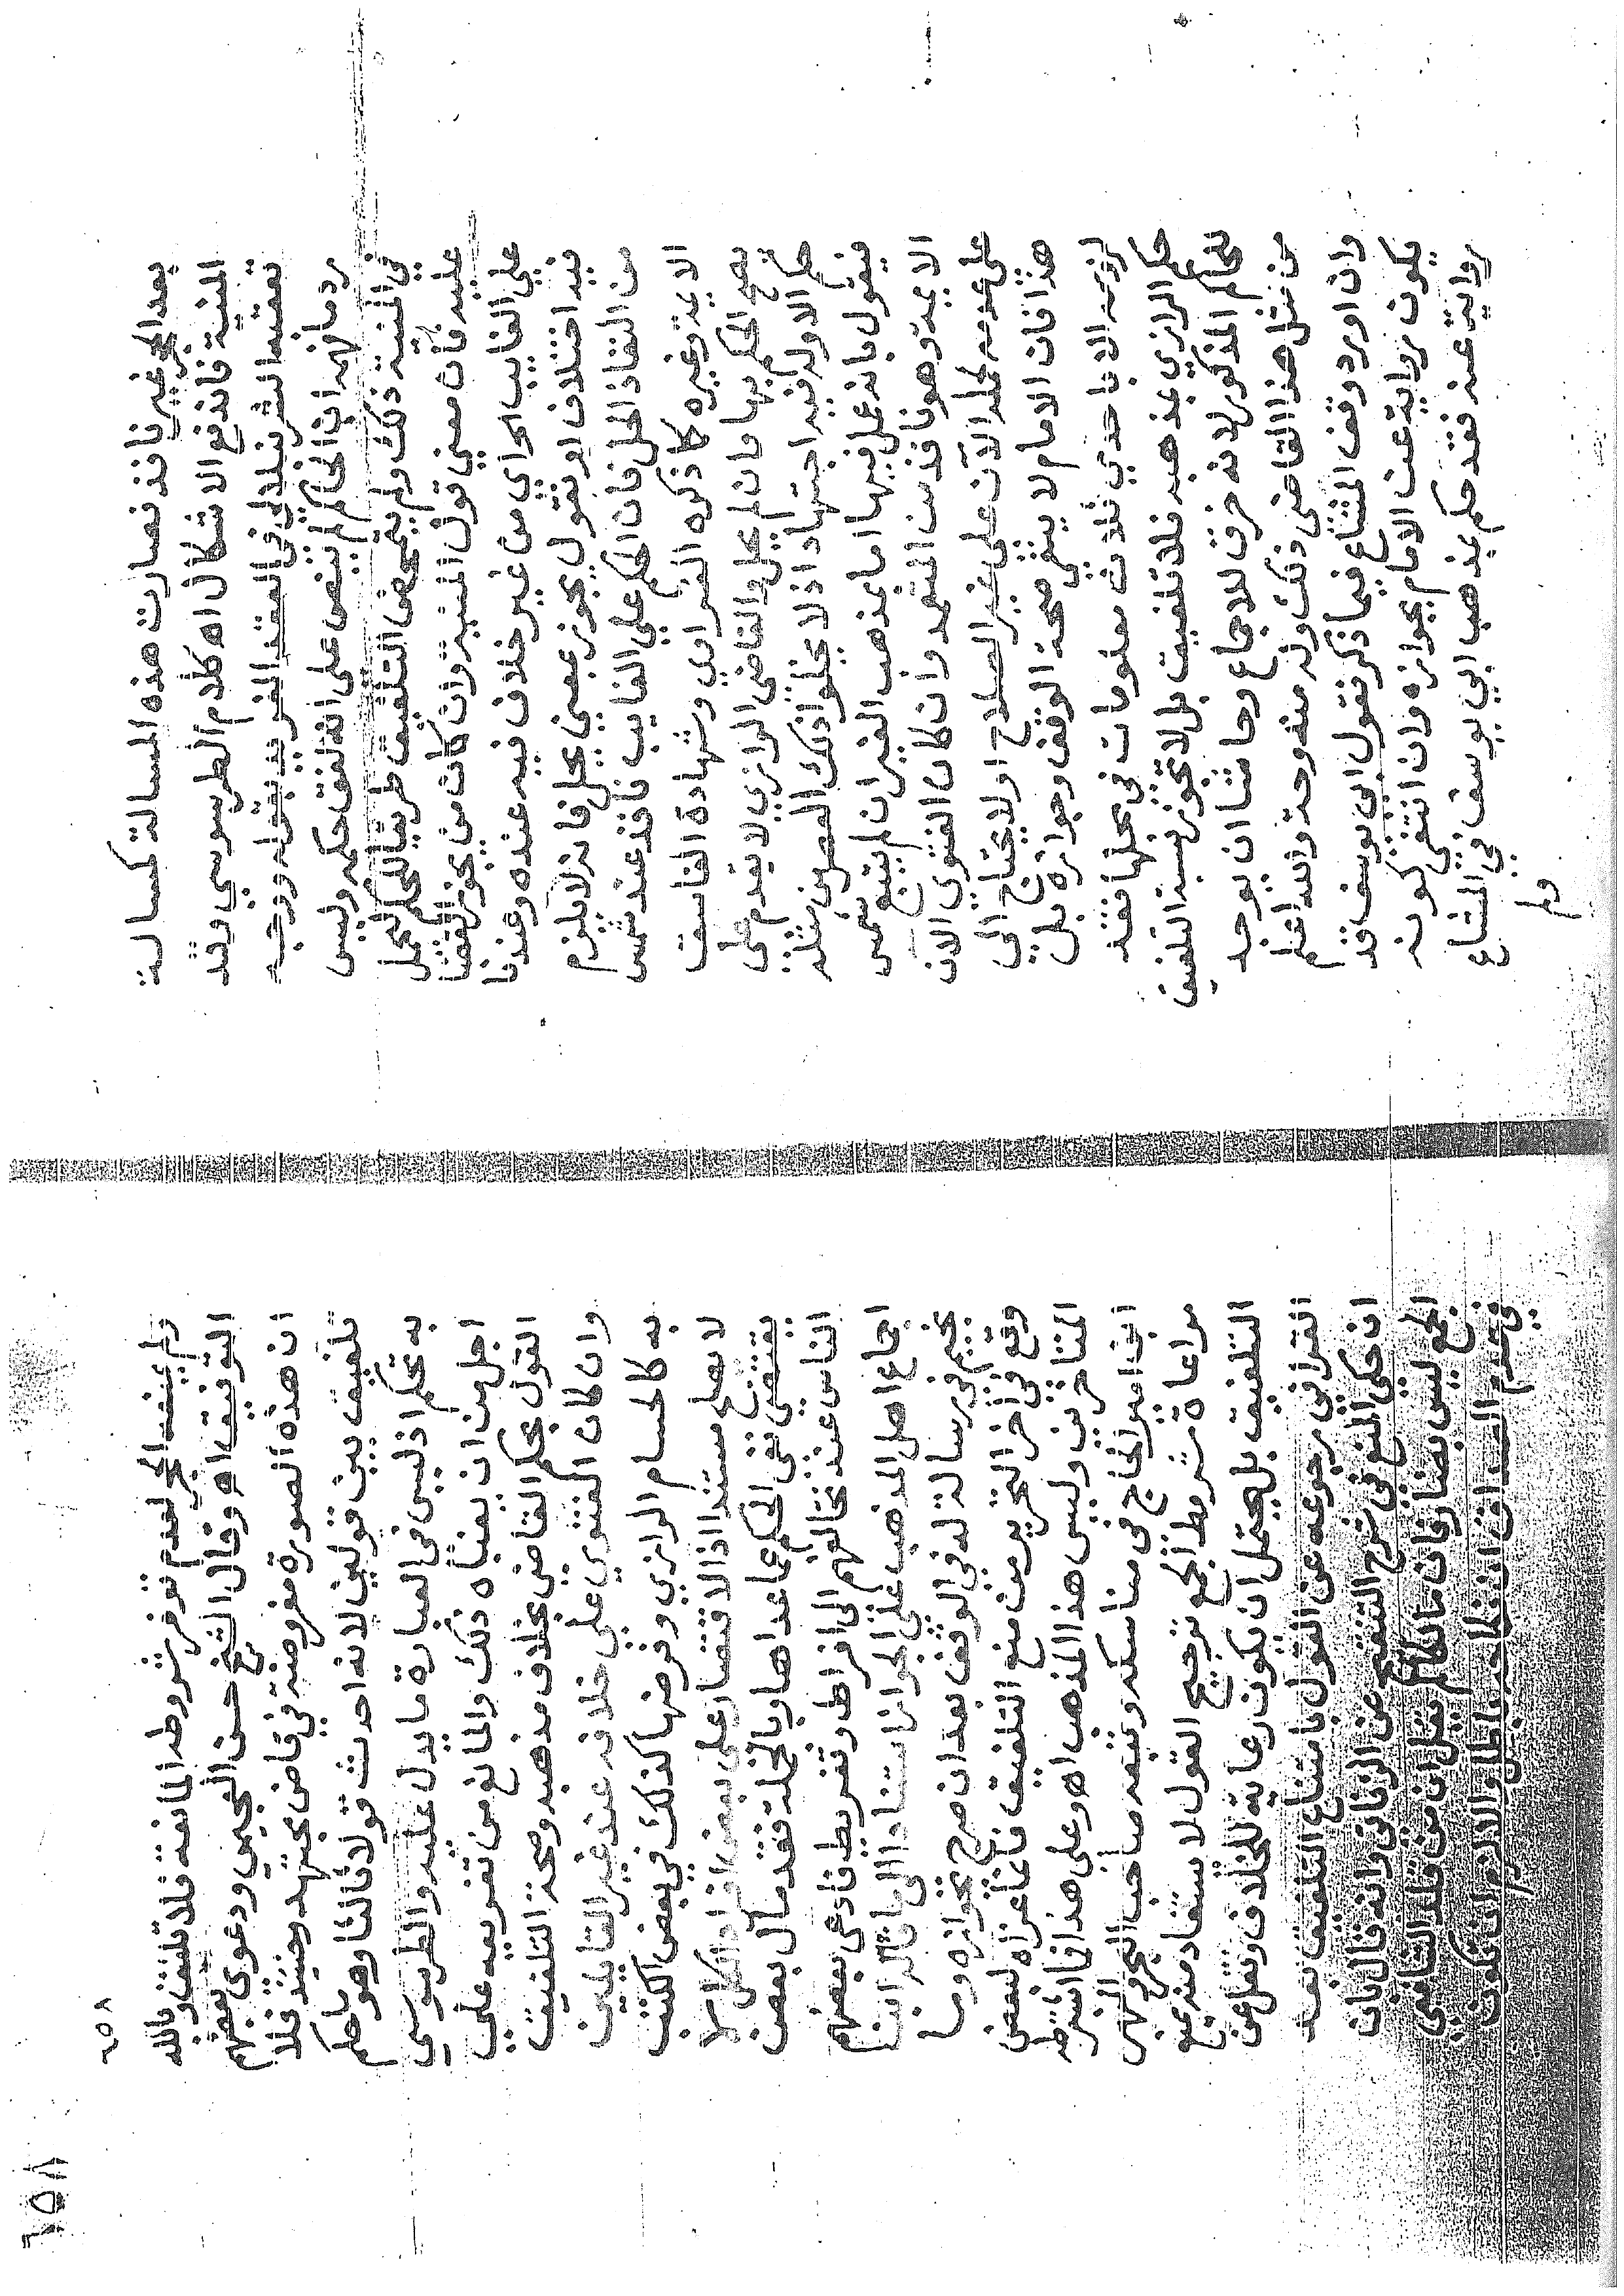 بعد الحجر غير نافذ فصارت هذه المسالة كمسالة
المنية فاندفع الاشكال اه كلام الطرسوسي وقد
تعقبه الشرنبلالي في العقد الفريد بقوله ووجه
رد ما فهمه ان الحاكم لم ينص على انه لفق حكمه وليس
في المنية ذلك ولم يتمحض التلفيق طريقا للحكم لنحمل
عليه فان معنى قول المنية وان كان من يجوز القضا
على الغايب اي من غير خلاف فيه عنده وعندنا
فيه اختلاف او نقول يجوز بمعنى يحل فانه لا يلزم
من النفاذ الحل فان الحكم على الغايب نافذ عند شمس
الايمة وغيره كما ذكره وشهادة الفاسق
يصح الحكم بها وان لم يحل والقاضي الرازي لا يقدم على
حكم الا وله فيه اجتهاد اذ لا يخلو اذ ذلك العصر من مثله
فيقول بانه عمل فيها اما بمذهب الغير ان لم يتبع شمس
الايمة وهو نافذ من المتعمد وان كان الفتوى الان
على عدمه لحمله الان على غير الصلاح او لا يحتاج الى
هذا فان الامام لا ينفي صحة الوقف وجوازه بل
لزومه الا باحدي ثلاث معلومات في محلها فقد
حكم الرازي بمذهبه فلا تلفيق بل لا تجوز نسبة التلفيق
للحاكم المذكور لانه خرق للاجماع وحاشا ان يوجد
من مثل هذا القاضي ذلك وحده والله اعلم
وان اورد وقف المشاع فيما ذكر فنقول ابي يوسف قد
يكون رواية عن الامام بجوازه وان انتفى كونه
رواية عنه فقد حكم بمذهب ابي يوسف في المشاع
ولم
٦٥٨
٦٥٨
ولم يعينه الحجر لعدم توفر شروطه المانعة فلا تلفيق وبالله
التوفيق اه وقال الشيخ حسن العجيمي ودعوى بعضهم
ان هذه الصورة مفروضة في قاض مجتهد وحينئذ فلا
تلفيق بين قولين لانه احدث قولا ثالثا وهو ما حكم
به تحكم اذ ليس في العبارة ما يدل عليه والطرسوسي
اجل من ان يعناه ذلك والمانع من تفريعه على
القول بحكم القاضي بخلاف مذهبه وصحة التلفيق
وان كان الفتوى على خلافه عند غير القايلين
به كالحسام الرازي وفرضها كذلك في بعض الكتب
لا يصلح مستندا اذ الاقتصار على بعض افراد الكلي لا
يقتضي نفي الحكم عما عداها وبالجملة فقد مال بعض
الناس عند تخالفهم الى افراط وتفريط فادعى بعضهم
اجماع اهل المذهب على الجواز استنادا الى ما قاله ابن
نجيم في رسالة له في الوقف بعد ان صرح بجوازه وما
وقع في اخر التحرير من منع التلفيق فانما عزاه لبعض
المتاخرين وليس هذا المذهب اه وعلى هذا فما اشترطه
ابن امير الحاج في مناسكه وتبعه صاحب البحر والنهر
مراعاة شروط الجمع ترجيح القول لا ستفاد منه بمنع
التلفيق بل يحتمل ان يكون رعاية للخلاف ونقل عن
القرافي رجوعه عن القول بامتناع التلفيق بعد
ان حكى المنع في شرح التنقيح عن الزناتي وانه قال بان
الجمع ليس بضار فان مالكا لم يقل ان من قلد الشافعي
في عدم الصداق ان نكاحه باطل والا لزم ان تكون